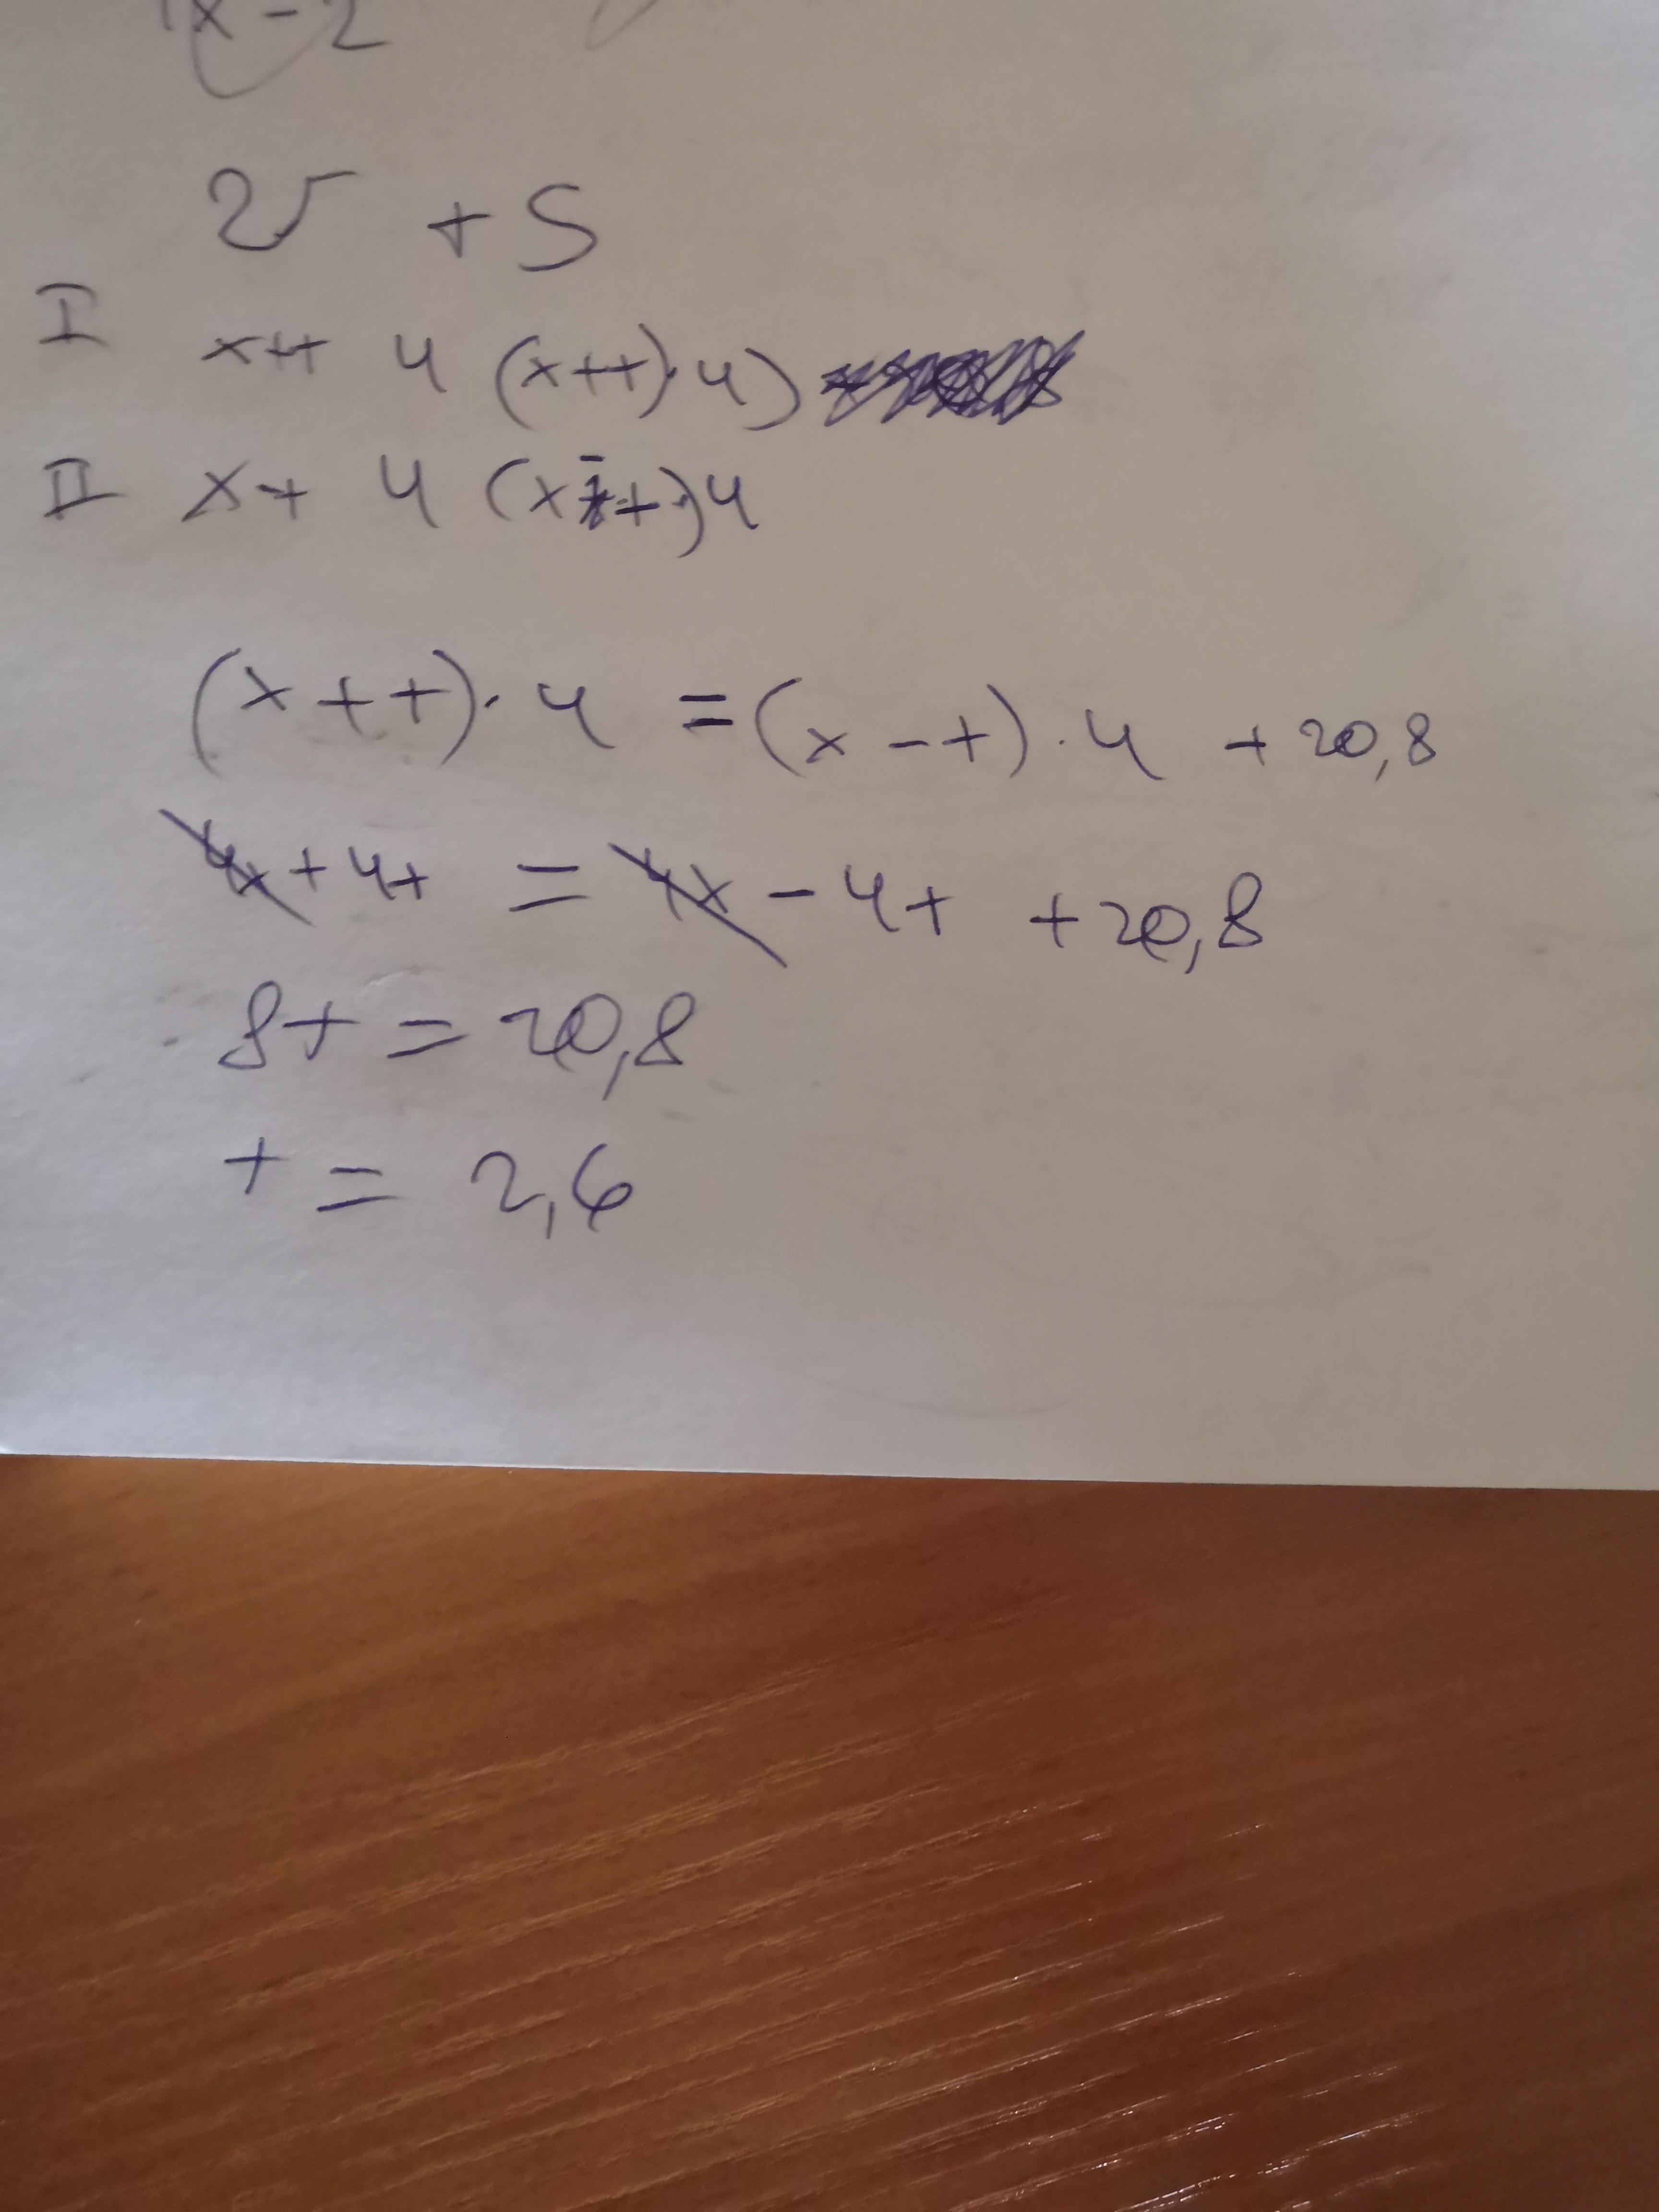 x - 2
v t S
I x+t 4 (x+t)·4)
II x-t 4 (x-t)·4
(x+t)·4 = (x-t)·4 + 20,8
4x + 4t = 4x - 4t + 20,8
8t = 20,8
t = 2,6